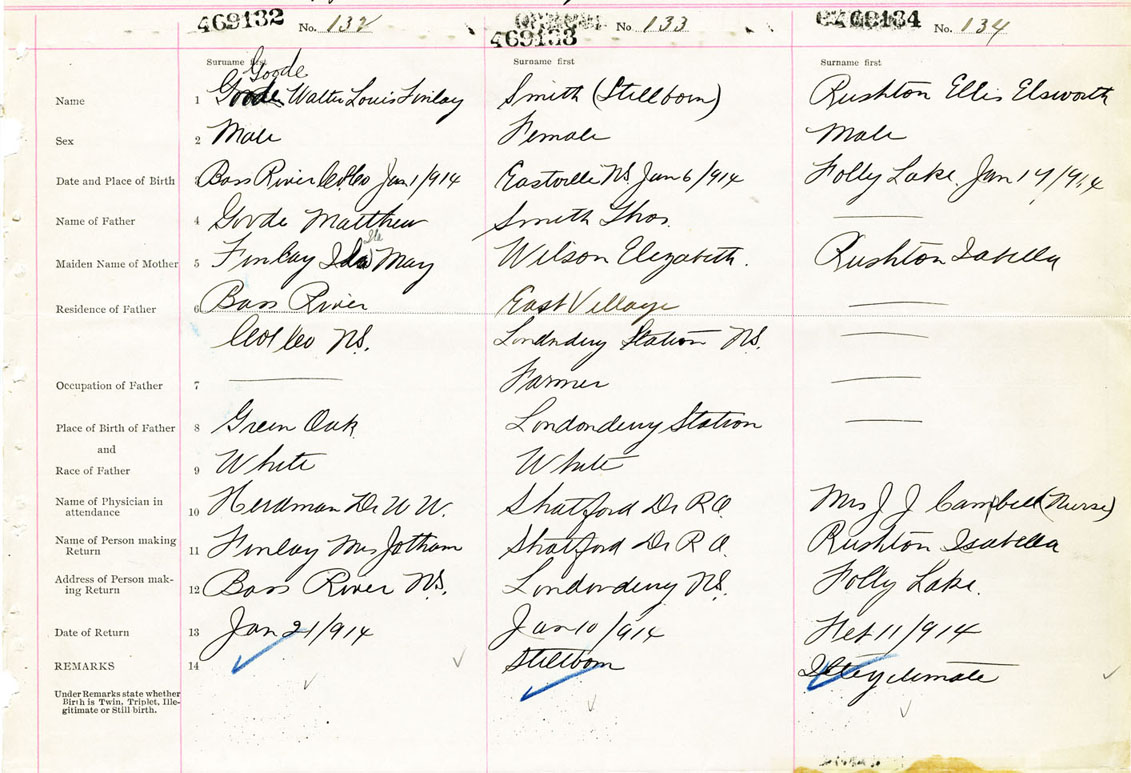 469132 No. 132
469133 No 133
469134 No. 134
Surname first Surname first Surname first
Goode
Name 1 Goode Walter Louis Finlay Smith (Stillborn) Rushton Ellis Elsworth
Sex 2 Male Female Male
Date and Place of Birth 3 Bass River Col Co Jan 1/914 Eastville NS. Jan 6/914 Folly Lake. Jan 17/914
Name of Father 4 Goode Matthew Smith Thos.
Maiden Name of Mother 5 Finlay Ida May Wilson Elizabeth. Rushton Isabella
Residence of Father 6 Bass River East Village
Col Co NS. Londonderry Station NS.
Occupation of Father 7 Farmer
Place of Birth of Father 8 Green Oak Londonderry Station
and
Race of Father 9 White White
Name of Physician in
attendance 10 Herdman Dr W W. Shatford Dr R O. Mrs J J Campbell (Nurse)
Name of Person making
Return 11 Finlay Mrs Jotham Shatford Dr R O. Rushton Isabella
Address of Person mak-
ing Return 12 Bass River NS. Londonderry NS. Folly Lake.
Date of Return 13 Jan 21/914 Jan 10/914 Feb 11/914
REMARKS 14 Stillborn
Under Remarks state whether
Birth is Twin, Triplet, Ille-
gitimate or Still birth.